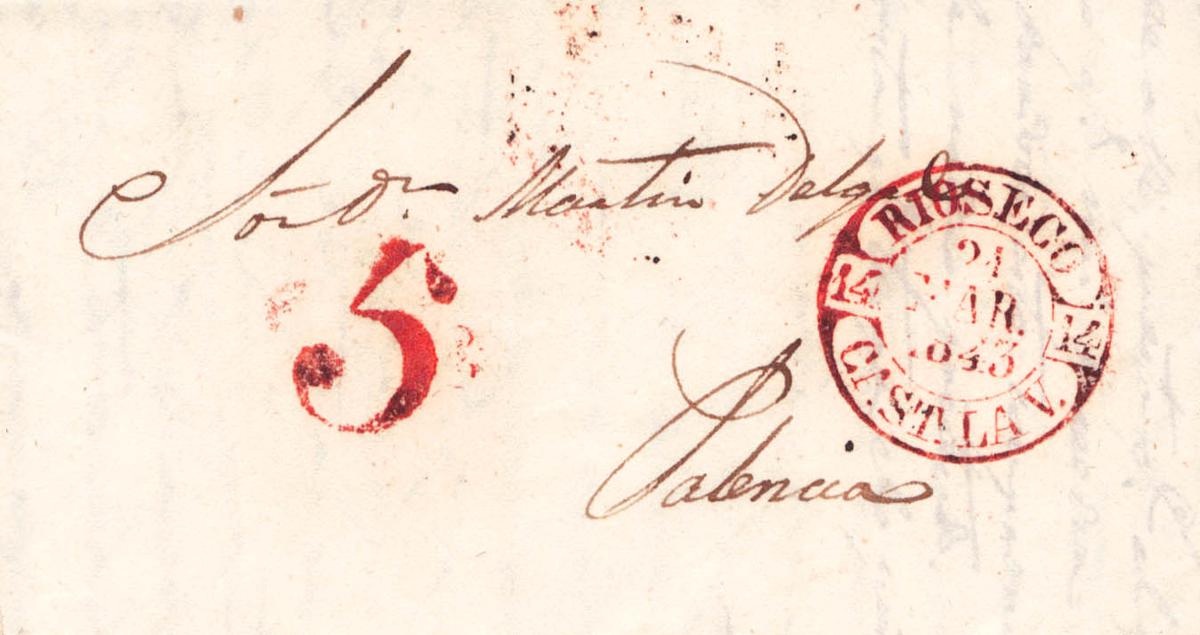 Sor Dn Martin Delgado
5
RIOSECO
14 14
21
MAR.
1843
CAST. LA V.
Palencia